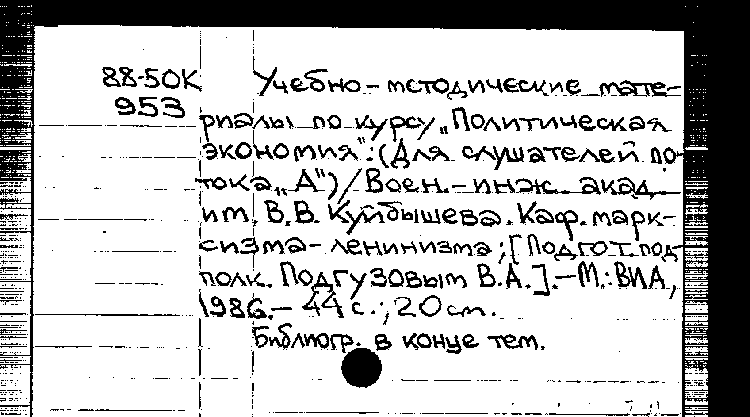 88-50К Учебно-методические мате-
953
риалы по курсу „Политическая
экономия": (Для слушателей по-
тока „А") / Воен.-инж. акад.
им. В.В. Куйбышева. Каф. марк-
сизма-ленинизма; [Подгот. под-
полк. Подгузовым В.А.].-М.: ВИА,
1986.- 44 с.; 20 см.
Библиогр. в конце тем.